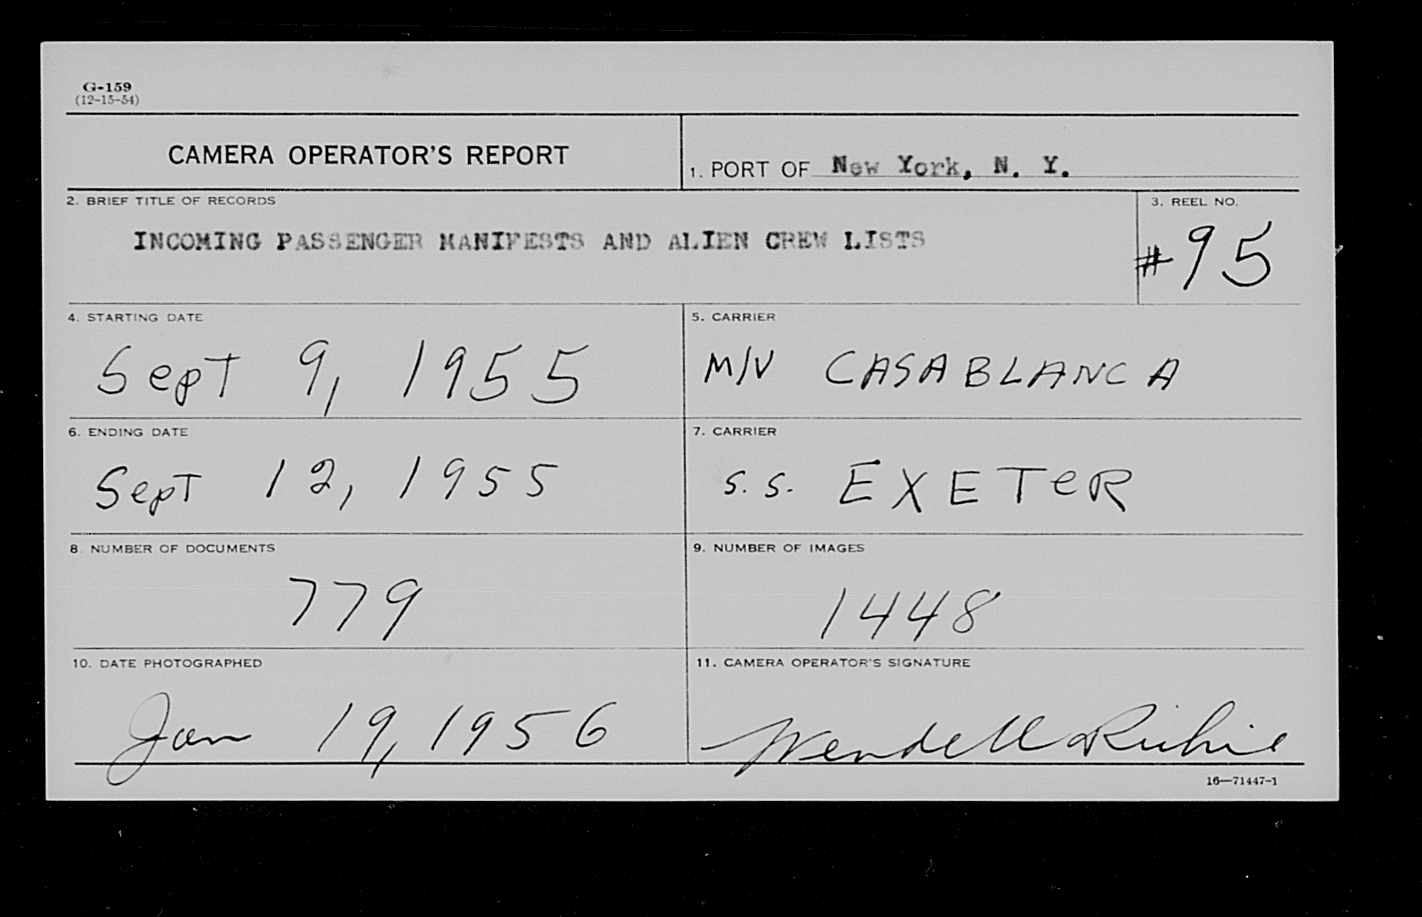 G-159
(12-15-54)
CAMERA OPERATOR'S REPORT
1. PORT OF New York, N. Y.
2. BRIEF TITLE OF RECORDS
INCOMING PASSENGER MANIFESTS AND ALIEN CREW LISTS
3. REEL NO.
#95
4. STARTING DATE
Sept 9, 1955
5. CARRIER
M/V CASABLANCA
6. ENDING DATE
Sept 12, 1955
7. CARRIER
S.S. EXETER
8. NUMBER OF DOCUMENTS
779
9. NUMBER OF IMAGES
1448
10. DATE PHOTOGRAPHED
Jan 19, 1956
11. CAMERA OPERATOR'S SIGNATURE
Wendell Richie
16—71447-1